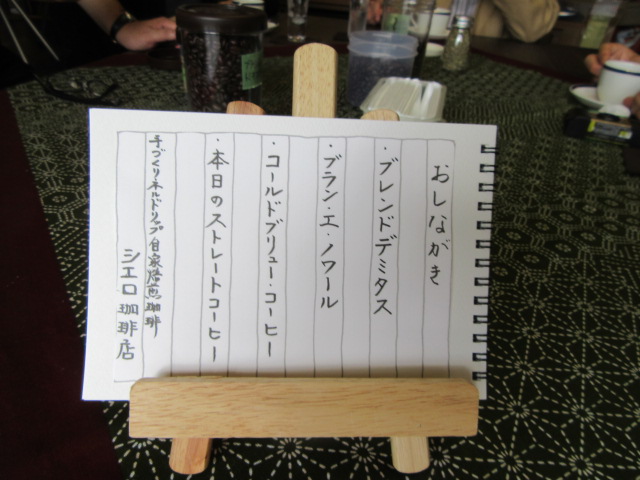 おしながき
・ブレンドデミタス
・ブラン・エ・ノワール
・コールドブリュー・コーヒー
・本日のストレートコーヒー
手づくりネルドリップ自家焙煎珈琲
シエロ珈琲店